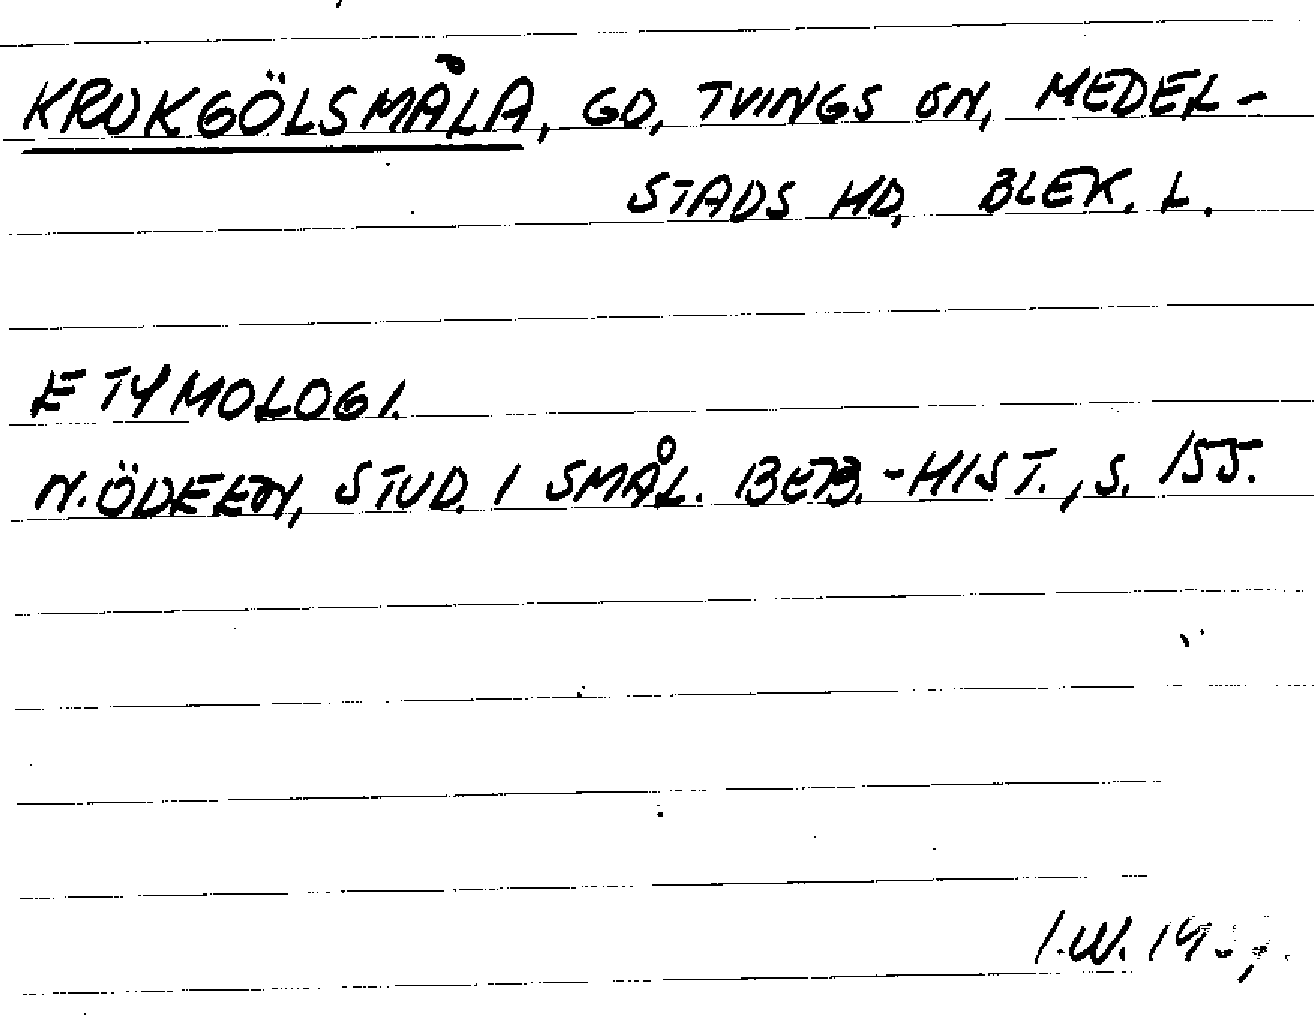 KRUKGÖLSMÅLA, GD, TVINGS SN, MEDEL-
STADS HD, BLEK. L.
ETYMOLOGI.
N. ÖDEEN, STUD. I SMÅL. BEB.-HIST., S. 155.
I.W.